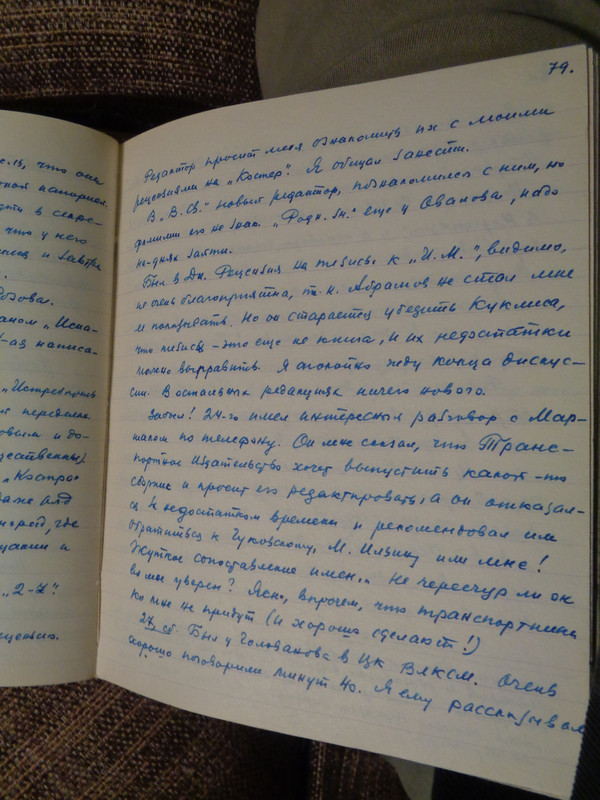 79.
Редактор просит меня ознакомить их с моими
рецензиями на „Костер". Я обещал занести.
В „В. Св." новый редактор, познакомился с ним, но
фамилии его не знаю. „Родн. яз." еще у Овалова, надо
на-днях зайти.
Был в Дн. Рецензия на тезисы к „И. М.", видимо,
не очень благоприятна, т. к. Абрамов не стал мне
и показывать. Но он старается убедить Куклиса,
что тезисы – это еще не книга, и их недостатки
можно выправить. Я спокойно жду конца дискус-
сии. В остальных редакциях ничего нового.
Забыл! 24-го имел интересный разговор с Мар-
шаком по телефону. Он мне сказал, что Транс-
портное издательство хочет выпустить какой-то
сборник и просит его редактировать, а он отказал-
ся недостатком времени и рекомендовал им
обратиться к Чуковскому, М. Ильину или мне!
Жуткое сопоставление имен... Не чересчур ли он
во мне уверен? Ясно, впрочем, что транспортники
ко мне не придут (и хорошо сделают!)
27 сб. Был у Голованова в ЦК ВЛКСМ. Очень
хорошо поговорили минут 40. Я ему рассказывал
сь, что она
ской папирос.
дти в секре-
что у него
и завтра
Розова.
аном „Испа-
написа-
„Истребитель
переделки
овым и до-
дественных)
„Костра
даже для
нград, где
щании и
„2-й".
рецензию.